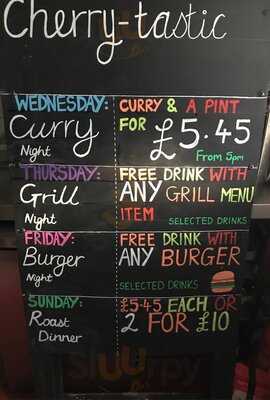 Cherry-tastic
WEDNESDAY:
Curry
Night
CURRY & A PINT
FOR £5.45
From 5pm
THURSDAY:
Grill
Night
FREE DRINK WITH
ANY GRILL MENU
ITEM
SELECTED DRINKS
FRIDAY:
Burger
Night
FREE DRINK WITH
ANY BURGER
SELECTED DRINKS
SUNDAY:
Roast
Dinner
£5.45 EACH OR
2 FOR £10
sluurpy